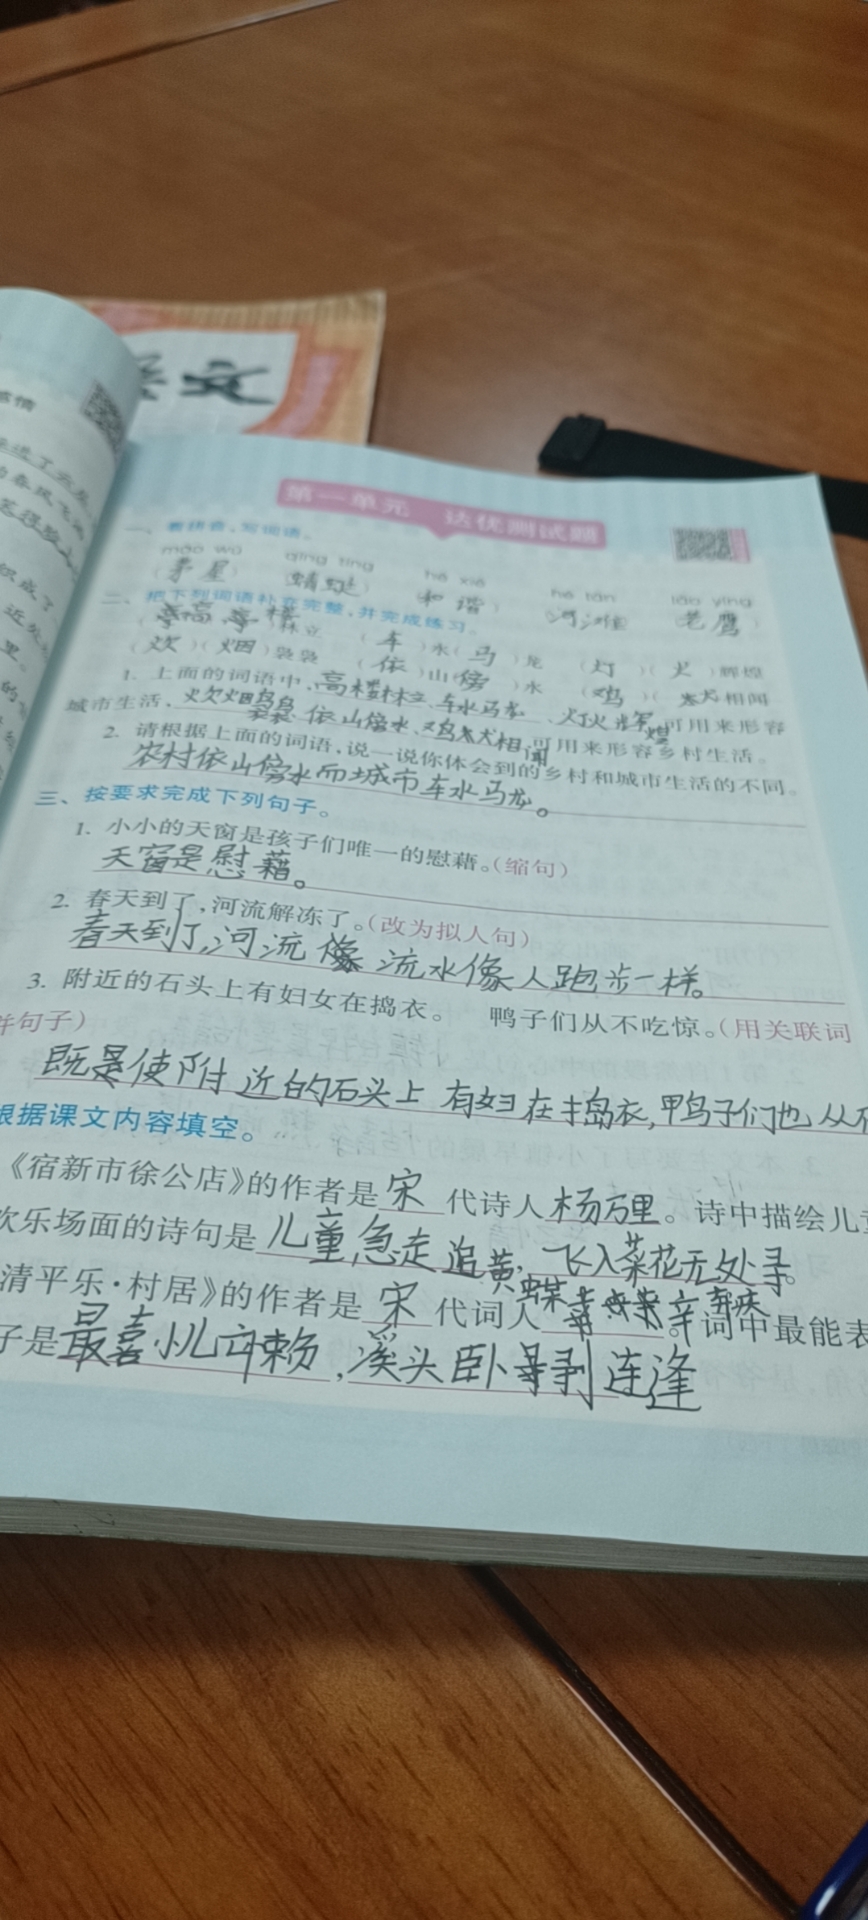 语文
感情
里。
第一单元 达优测试题
一、看拼音,写词语。
máo wū qīng tíng hé xié hé tān lǎo yīng
(茅屋) (蜻蜓) (和谐) 河滩 (老鹰)
二、把下列词语补充完整,并完成练习。
(高)(楼)林立 (车)水(马)龙 (灯)(火)辉煌
(炊)(烟)袅袅 (依)山(傍)水 (鸡)(犬)相闻
1. 上面的词语中,高楼林立、车水马龙、灯火辉煌可用来形容
城市生活,炊烟袅袅、依山傍水、鸡犬相闻可用来形容乡村生活。
2. 请根据上面的词语,说一说你体会到的乡村和城市生活的不同。
农村依山傍水而城市车水马龙。
三、按要求完成下列句子。
1. 小小的天窗是孩子们唯一的慰藉。(缩句)
天窗是慰藉。
2. 春天到了,河流解冻了。(改为拟人句)
春天到了,河流 流水像人跑步一样。
3. 附近的石头上有妇女在捣衣。 鸭子们从不吃惊。(用关联词
并句子)
既是使附近的石头上有妇在捣衣,鸭子们也从不
根据课文内容填空。
《宿新市徐公店》的作者是宋代诗人杨万里。诗中描绘儿童
欢乐场面的诗句是儿童急走追黄蝶,飞入菜花无处寻。
清平乐·村居》的作者是宋代词人辛弃疾。词中最能表
子是最喜小儿亡赖,溪头卧剥莲蓬